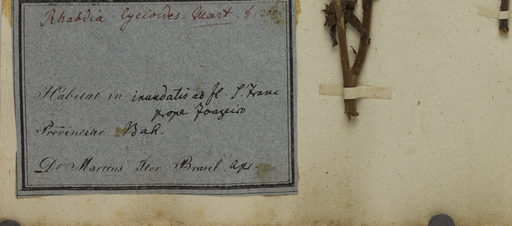 Rhabdia lycioides. Mart.
Habitat in inundatis ad fl. S. Franc
prope Joazeiro
Provinciae Bah.
Dr. Martius Iter Brasil. Apr.